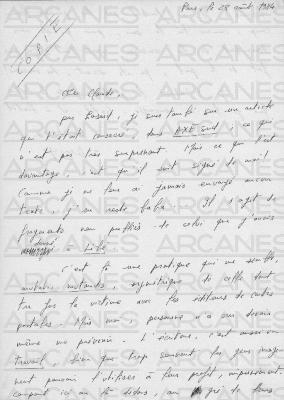 Paris, le 28 août 1984
COPIE
Cher Claude,
par hasard, je suis tombé sur un article
qui t'était consacré, dans AXE Sud, ce qui
n'est pas très surprenant. Mais ce qui l'est
davantage, c'est qu'il soit signé de moi!
Comme je ne leur ai jamais envoyé aucun
texte, j'en reste baba. Il s'agit de
fragments non publiés de celui que j'avais
donné à
C'est là une pratique qui me semble,
mutatis mutandis, symétrique de celle dont
tu fus la victime avec les éditeurs de cartes
postales. Mais moi, personne n'a cru devoir
même me prévenir. L'écriture, c'est aussi un
travail, bien que trop souvent les gens imagi-
nent pouvoir l'utiliser à leur profit,
ARCANES